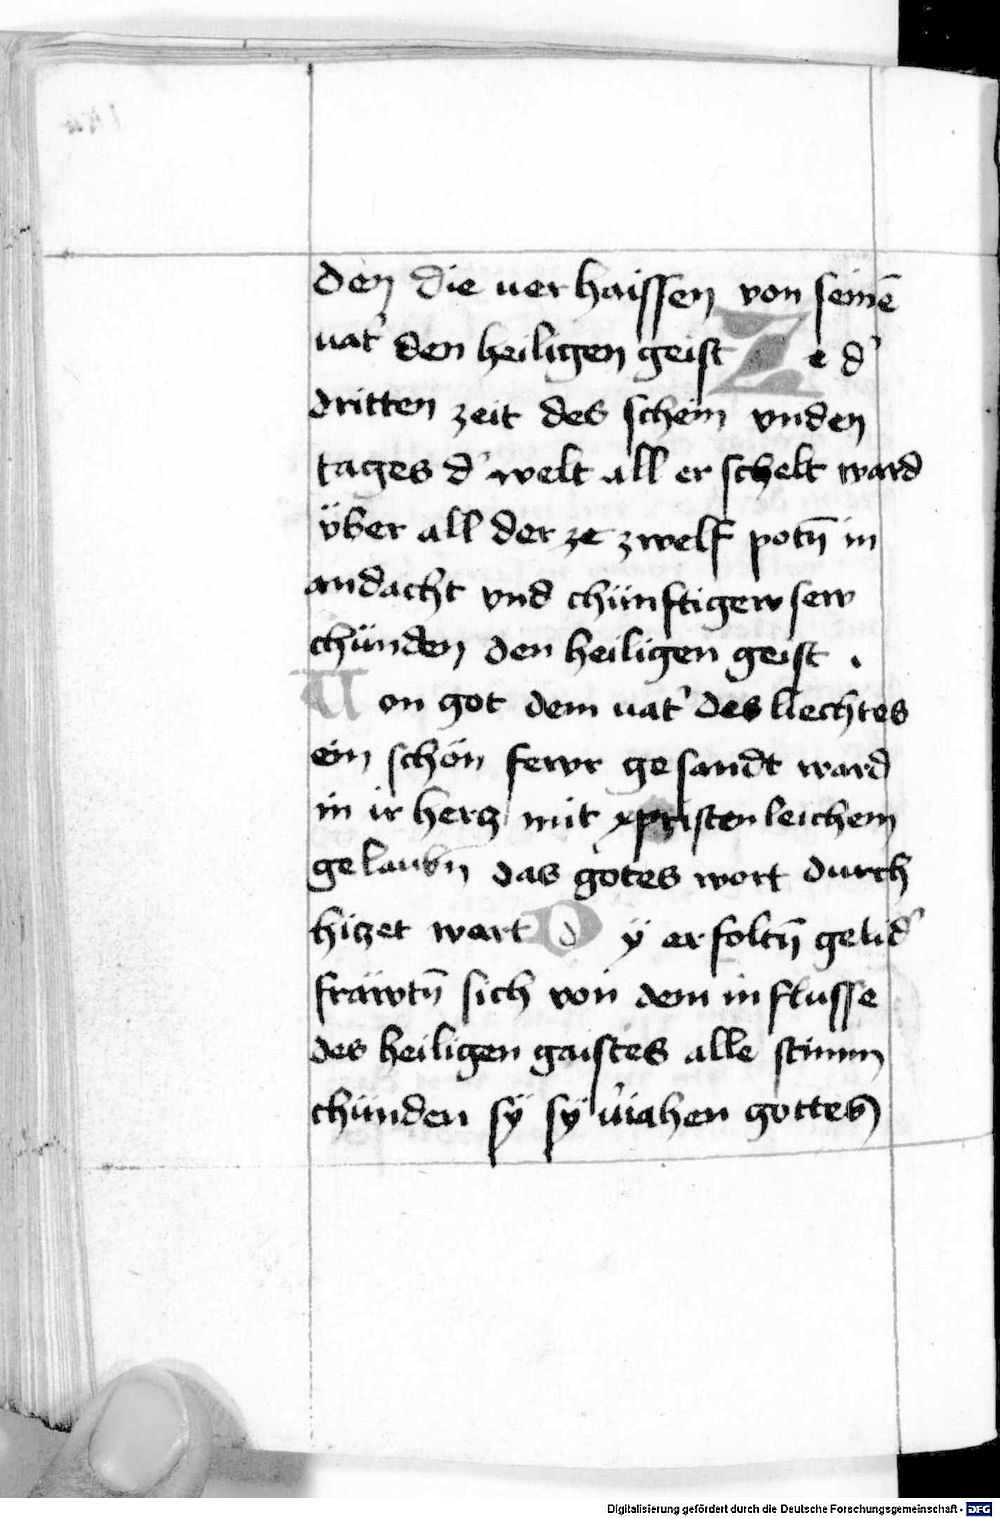 den die uerhaissen von seinē
uat' den heiligen geist Ze d'
dritten zeit des schein vnden
tages d' welt all er schelt ward
v̈ber all der ze zwelf potn̄ in
andacht vnd chünftigew sew
chünden den heiligen geist .
Uon got dem uat' des liechtes
ein schön fewr gesandt ward
in ir hercz mit xpristenleichem
gelaubn̄ das gotes wort durch
hiczet wart Dÿ erfoltn̄ gelid'
fräwtn̄ sich von dem influsse
des heiligen gaistes alle stimm
chünden sÿ sy u'iahen gottes
Digitalisierung gefördert durch die Deutsche Forschungsgemeinschaft - DFG